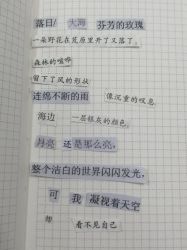 落日/ 大海 芬芳的玫瑰
一朵野花在荒原里开了又落了;
森林的喧哗
留下了风的形状
连绵不断的雨 像沉重的叹息
海边 一层银灰的颜色
月亮 还是那么亮,
整个洁白的世界闪闪发光,
可 我 凝视着天空
却 看不见自己